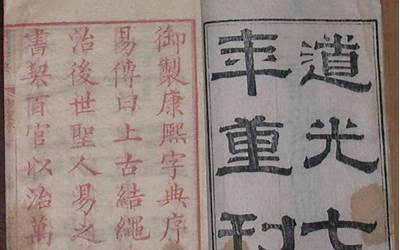 道光七
年重刊
御製康熙字典序
易傳曰上古結繩
治後世聖人易之
書契百官以治萬